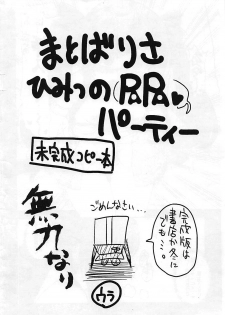 まとばりさ
ひみつの
パーティー
未完成コピー本
ごめんなさい…
完成版は
書店か冬に
でも…。
無力なり
ウラ